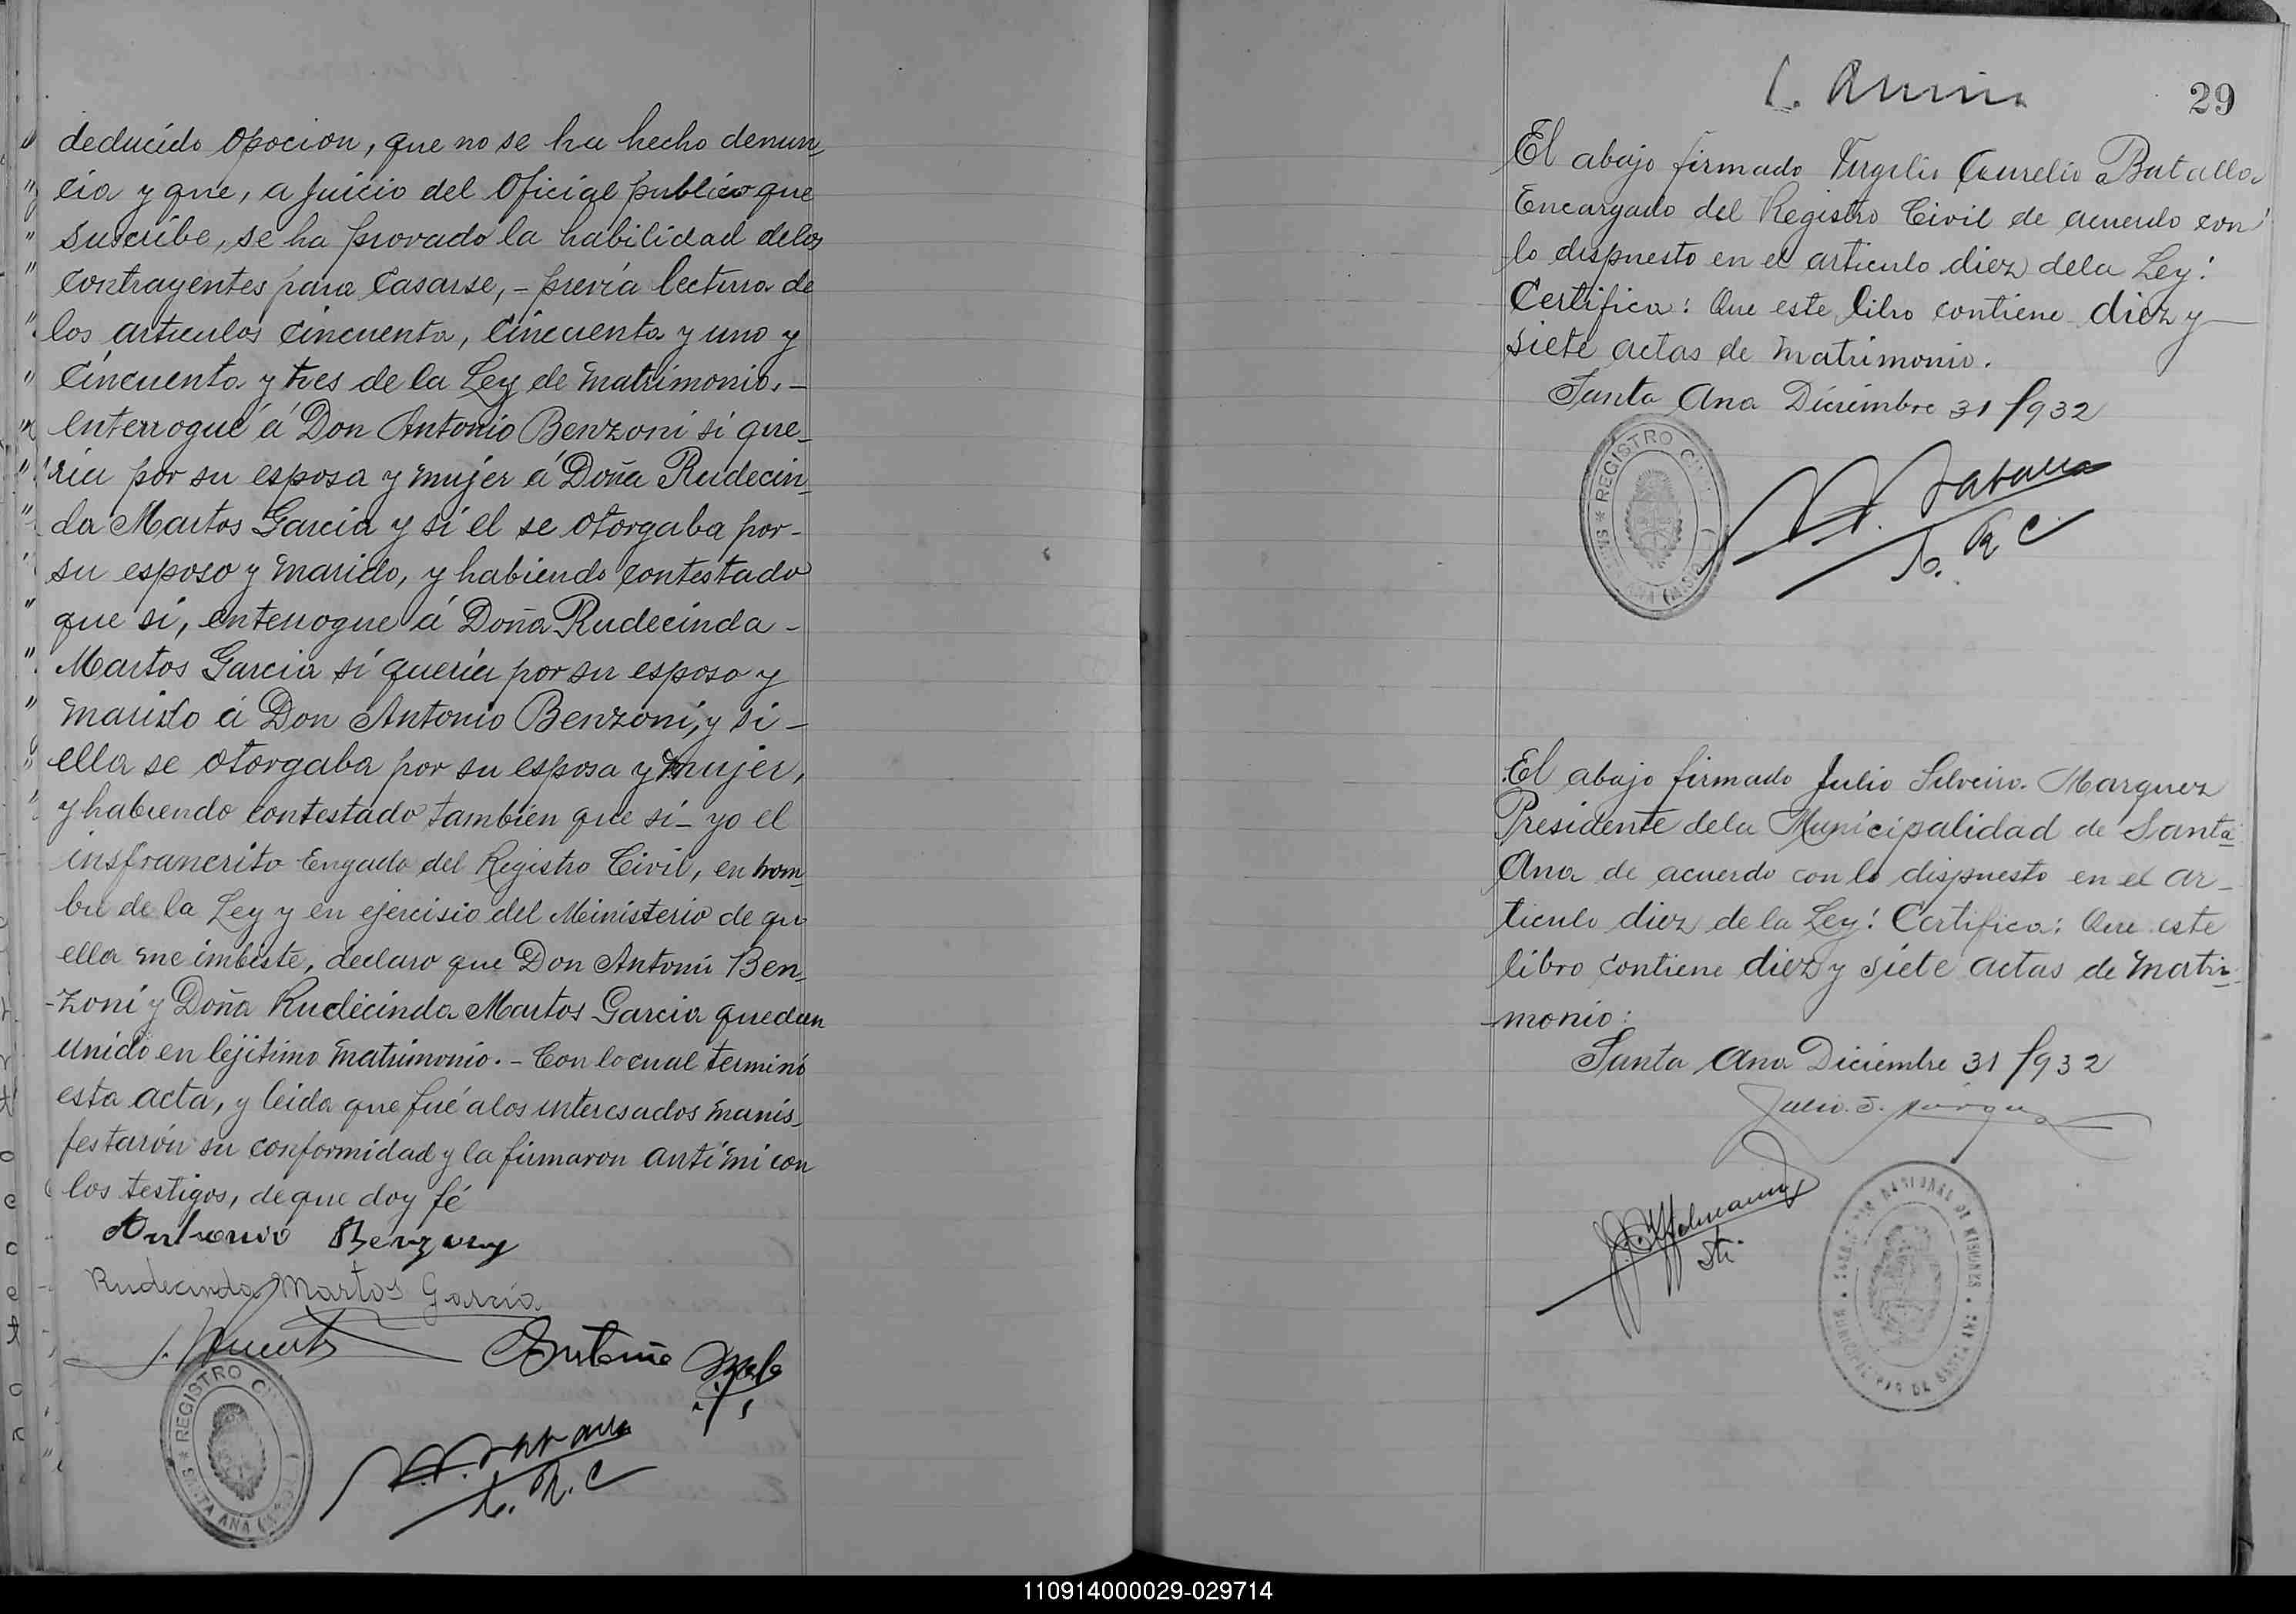 deducido Opocion, que no se ha hecho denun
cia y que, a Juicio del Oficial publico que
suscribe, se ha provado la habilidad delos
Contrayentes para Casarse, - previa lectura de
los articulos Cincuenta, Cincuenta y uno y
Cincuenta y tres de la Ley de Matrimonio. -
enterrogué á Don Antonio Benzoni si que-
ria por su esposa y mujer á Doña Rudecin-
da Martos Garcia y si el se otorgaba por-
su esposo y Marido, y habiendo contestado
que si, enterrogue á Doña Rudecinda -
Martos Garcia si queria por su esposo y
Marido á Don Antonio Benzoni, y si -
ella se otorgaba por su esposa y mujer,
y habiendo contestado también que si - yo el
insfrancrito Engado del Registro Civil, en nom-
bre de la Ley y en ejercisio del Ministerio de que
ella me imbiste, declaro que Don Antonio Ben-
-zoni y Doña Rudecinda Martos Garcia quedan
unido en lejitimo Matrimonio. - Con lo cual terminó
esta acta, y leida que fué a los interesados manis-
festarón su conformidad y la firmaron anti mi con
los testigos, de que doy fé
Antonio Benzony
Rudecinda Martos Garcia
Antonio
REGISTRO CIVIL
SANTA ANA
R. C
29
El abajo firmado Virgilio Aurelio Bataller
Encargado del Registro Civil de acuerdo con
lo dispuesto en el articulo diez dela Ley:
Certifica: Que este libro contiene diez y
siete actas de Matrimonio.
Santa Ana Diciembre 31/932
REGISTRO CIVIL
SANTA ANA
R C
El abajo firmado Julio Silveiro Marquez
Presidente dela Municipalidad de Santa
Ana de acuerdo con lo dispuesto en el ar-
ticulo diez de la Ley: Certifica: Que este
libro contiene diez y siete actas de Matri-
monio:
Santa Ana Diciembre 31/932
Julio. S. Marquez
NACIONAL DE MISIONES
MUNICIPALIDAD DE SANTA ANA
110914000029-029714